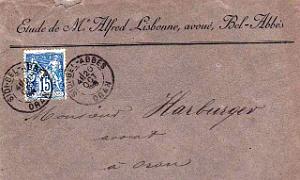 Etude de Me Alfred Lisbonne, avoué, Bel-Abbès
SIDI-BEL-ABBÈS
ORAN
15
SIDI-BEL-ABBÈS
ORAN
Monsieur Harburger
avocat
à Oran